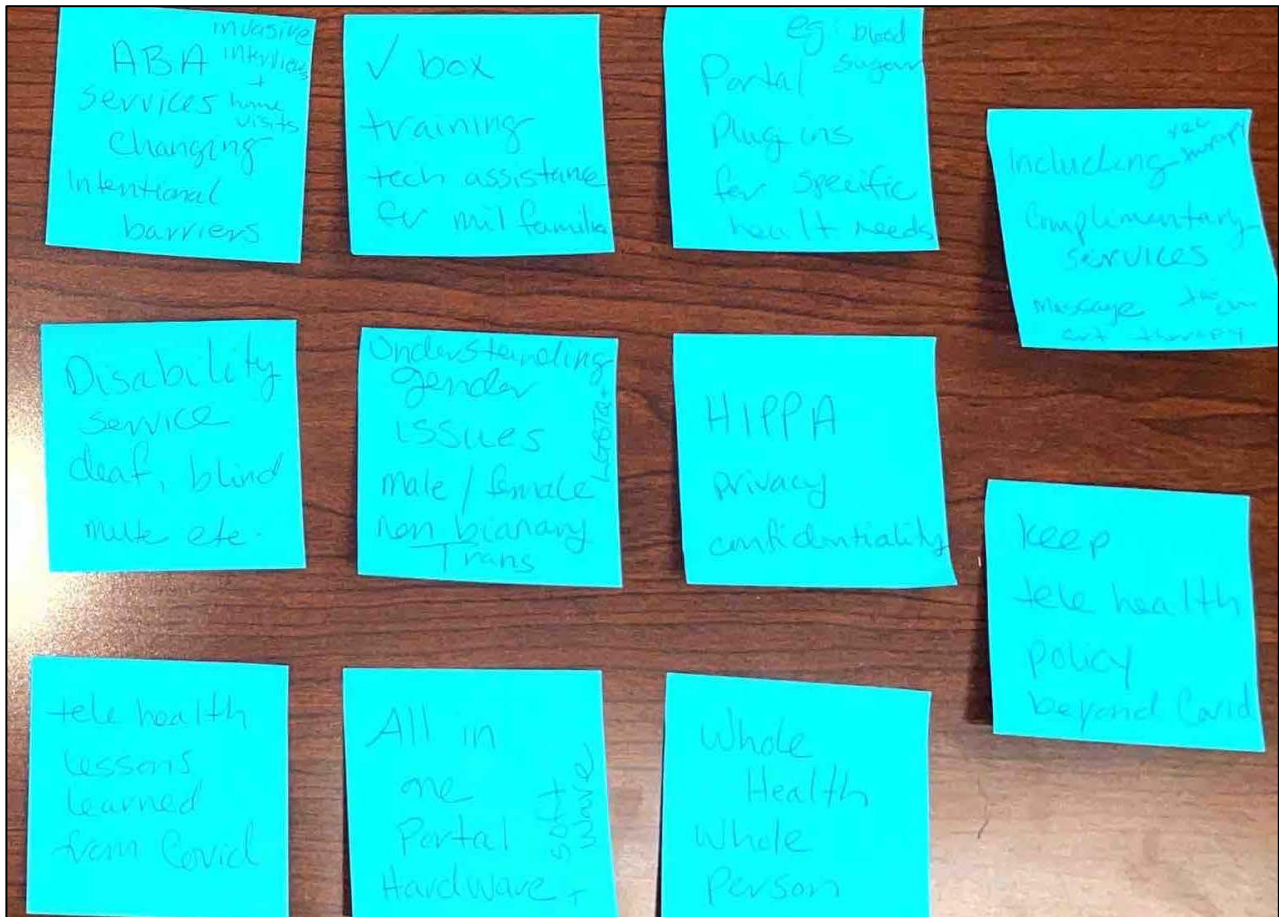 ABA
services
Changing
Intentional
barriers
invasive
interviews
+
home
visits
✓ box
training
tech assistance
for mil familia
eg: blood
sugar
Portal
Plug ins
for specific
healt needs
Including
rec
therapy
Complimentary
services
massage
art therapy
Disability
service
deaf, blind
mute etc.
Understanding
gender
issues
male / female
non bianary
Trans
LGBTQ+
HIPPA
privacy
confidentiality
keep
tele health
policy
beyond Covid
tele health
lessons
learned
from Covid
All in
one
Portal
Hardware +
soft
ware
Whole
Health
Whole
person